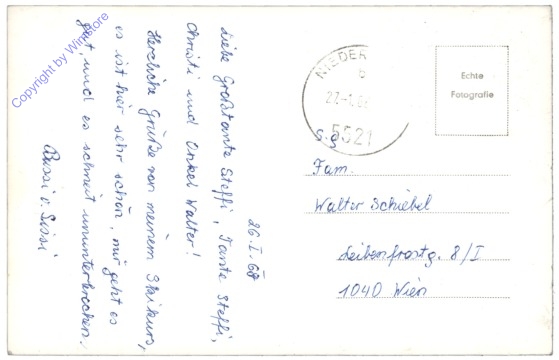 26.I.68
Liebe Großtante Steffi, Tante Steffi,
Christi und Onkel Walter!
Herzliche Grüße von meinem Skikurs,
es ist hier sehr schön, mir geht es
gut, und es schneit ununterbrochen.
Bussi v. Sissi
NIEDER
b
27.-1.68
5521
Echte
Fotografie
S.g.
Fam.
Walter Schiebel
Leibenfrostg. 8/I
1040 Wien
Copyright by Winstore